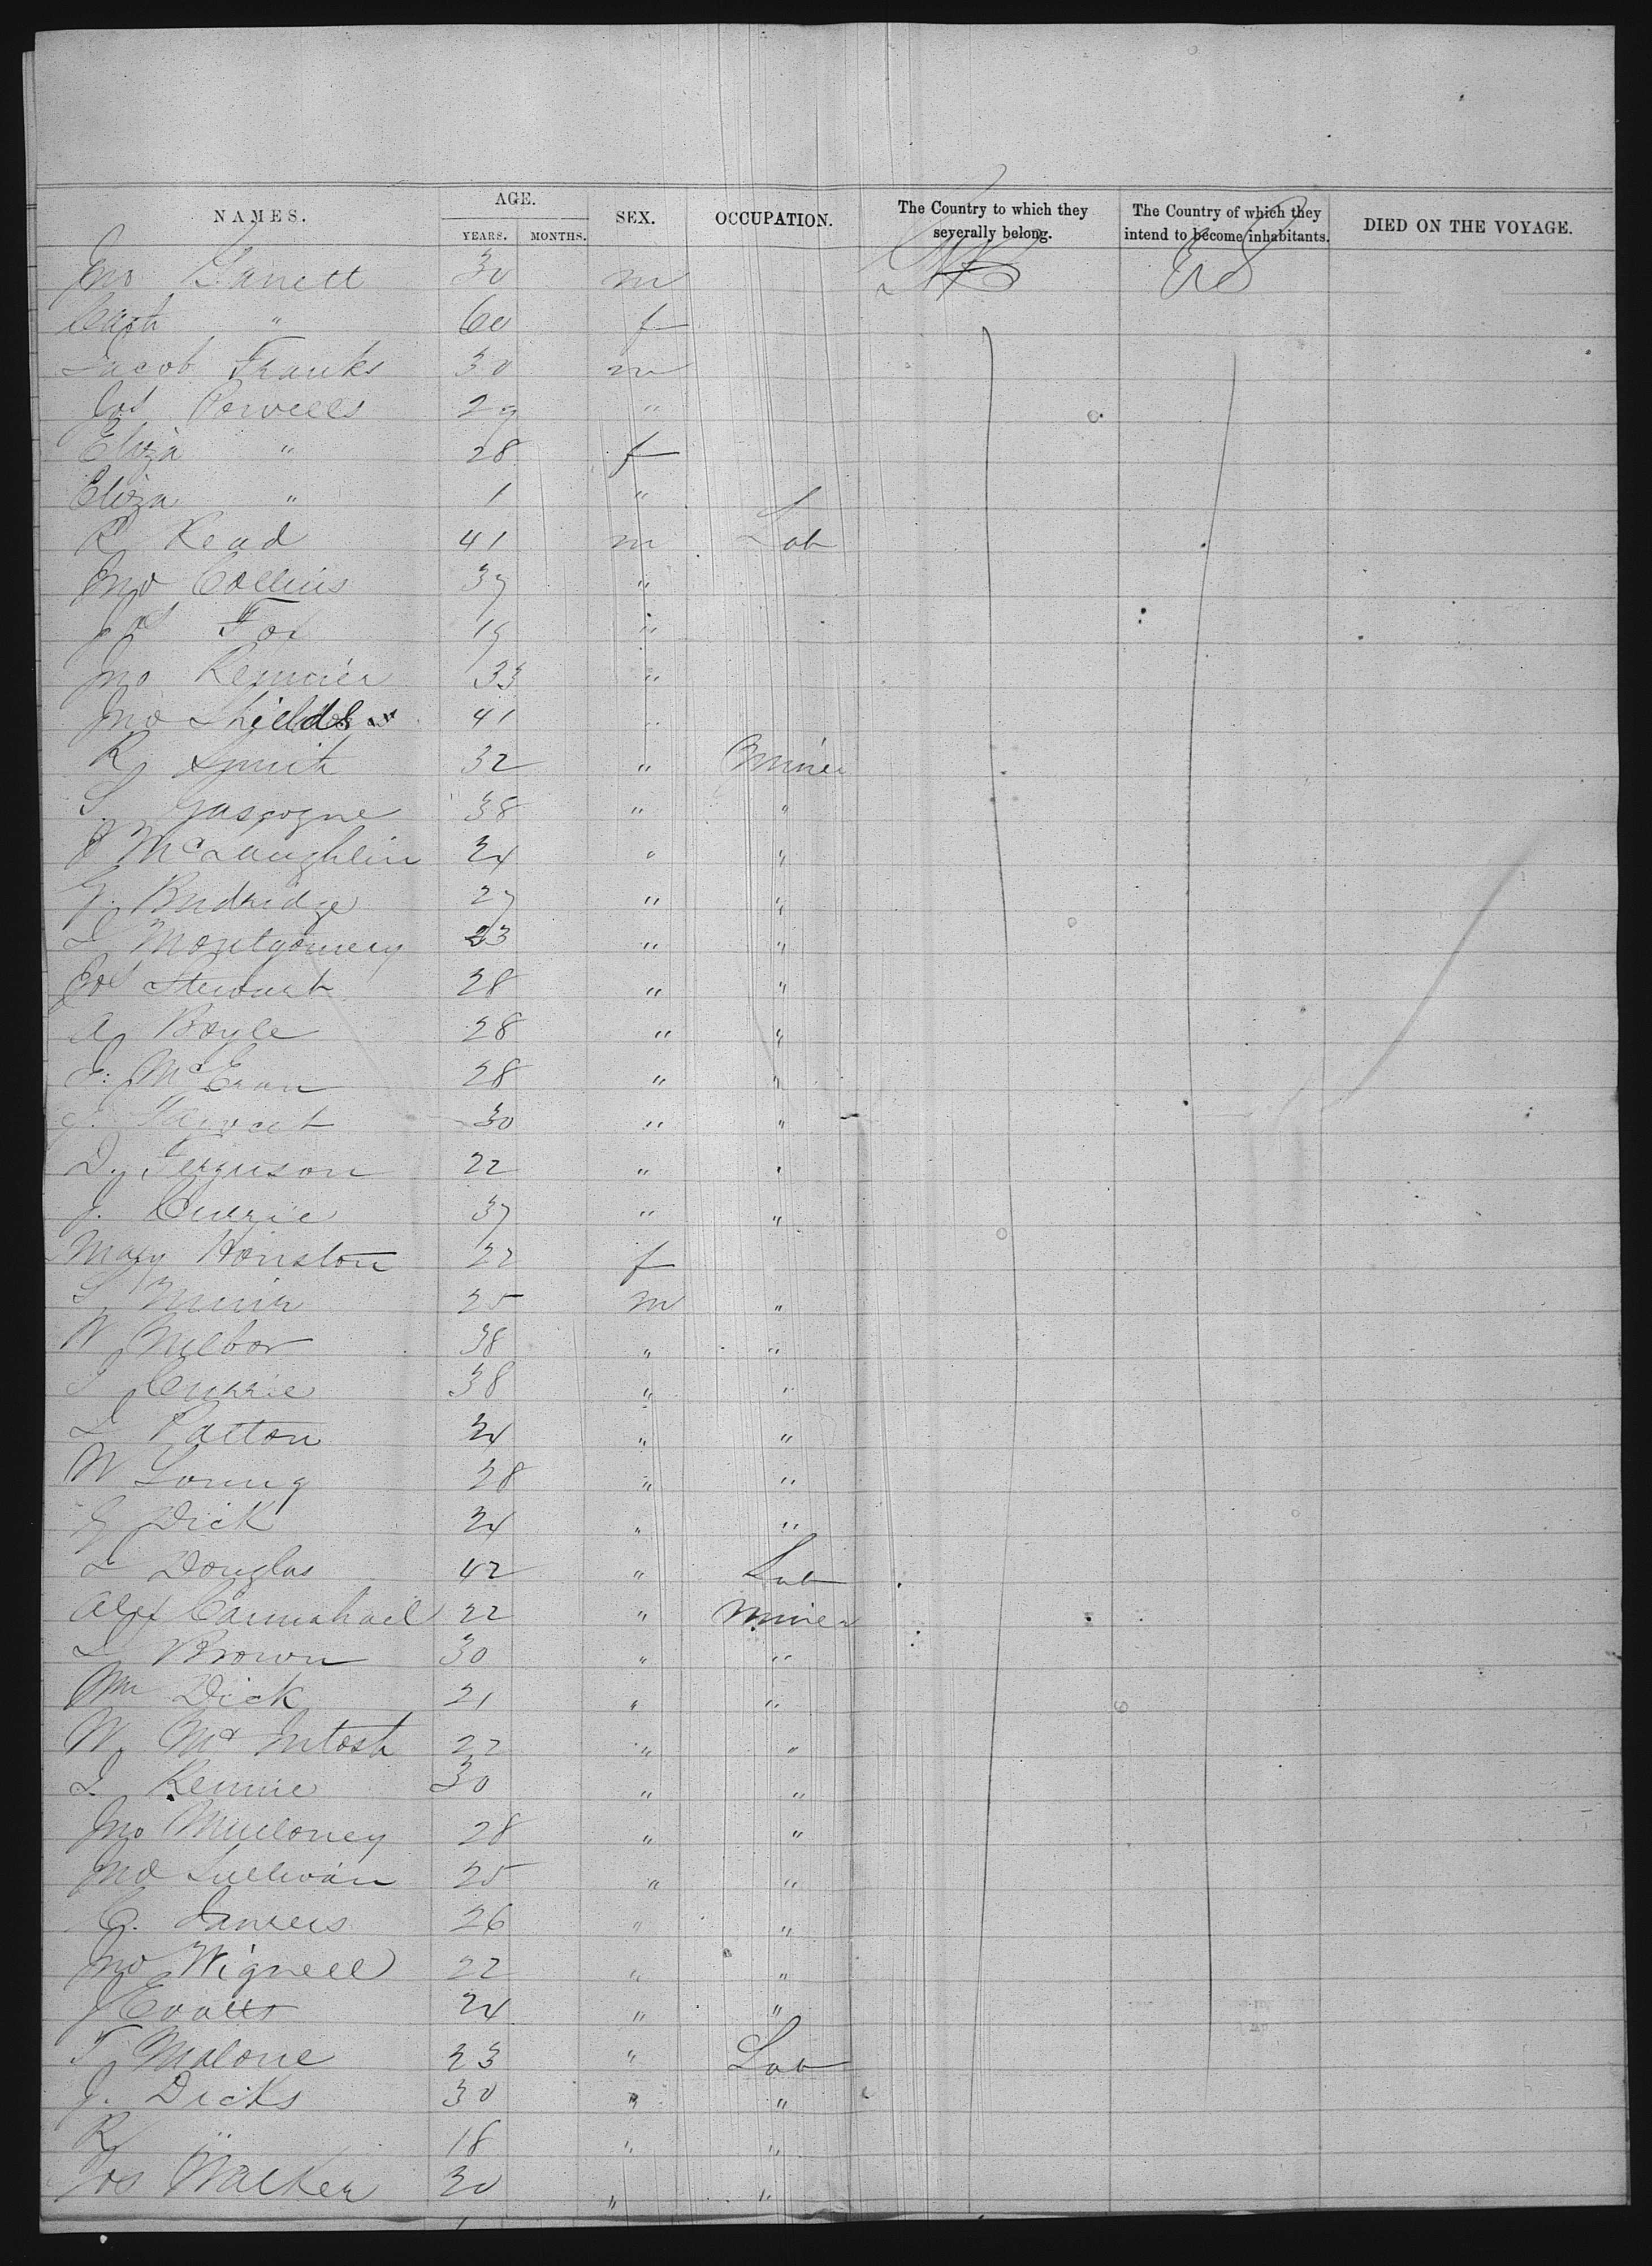 NAMES. AGE. YEARS. MONTHS. SEX. OCCUPATION. The Country to which they severally belong. The Country of which they intend to become inhabitants. DIED ON THE VOYAGE.
Jno Garrett 30 m GtB US
Cath " 60 f
Jacob Franks 30 m
Jos 29 "
Eliza " 28 f
Eliza " 1 "
R Read 41 m Lab
Jno Collins 37 "
Jas Fox 19 "
Jno 33 "
Jno Shields 41 "
R Smith 32 " Miner
S. Gascogne 38 " "
J McLaughlin 24 " "
G. 27 " "
D Montgomery 23 " "
Jos Stewart 28 " "
A Boyle 28 " "
28 " "
J. Stewart 30 " "
D. Ferguson 22 " "
J. Currie 37 " "
Mary Houston 22 f
S Muir 25 m "
W 38 " "
J Currie 38 " "
D Patton 24 " "
W Young 28 " "
G Dick 24 " "
D Douglas 42 " Lab
Alex Carmichael 22 " Miner
D Brown 30 " "
Wm Dick 21 " "
W. McIntosh 22 " "
D. Rennie 30 " "
Jno Muloney 28 " "
Jno Sullivan 25 " "
C. 26 " "
Jno Wignell 22 " "
J Evatts 24 " "
T Malone 23 " Lab
J. Dicks 30 " "
R " 18 " "
Jos Walker 30 " "